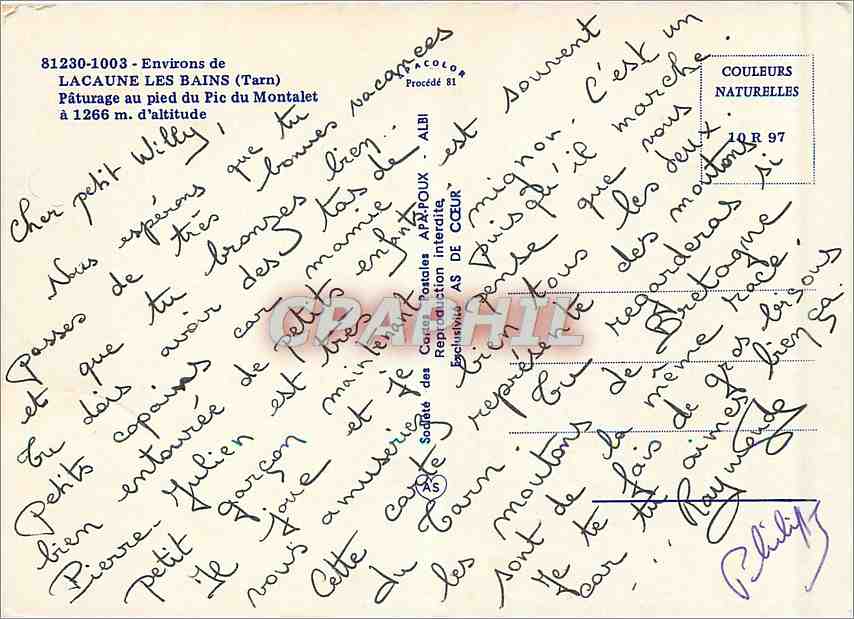 81230-1003 - Environs de
LACAUNE LES BAINS (Tarn)
Pâturage au pied du Pic du Montalet
à 1266 m. d'altitude
PACOLOR
Procédé 81
COULEURS
NATURELLES
10 R 97
Cher petit Willy,
Nous espérons que tu
passes de très bonnes vacances
et que tu bronzes bien...
Tu dois avoir des tas de
petits copains car mamie est souvent
bien entourée de petits enfants
Pierre-Julien est très mignon. C'est un
petit garçon maintenant puisqu'il marche.
Il joue et je pense que vous
vous amuseriez bien tous les deux.
Cette carte représente des moutons
du Tarn. Tu regarderas si
les moutons de Bretagne
sont de la même race.
Je te fais de gros bisous
car tu aimes bien ça.
... Raymonde
Philippe
Société des Cartes Postales APA-POUX - ALBI
Reproduction interdite
Exclusivité AS DE CŒUR
AS
CPAPHIL